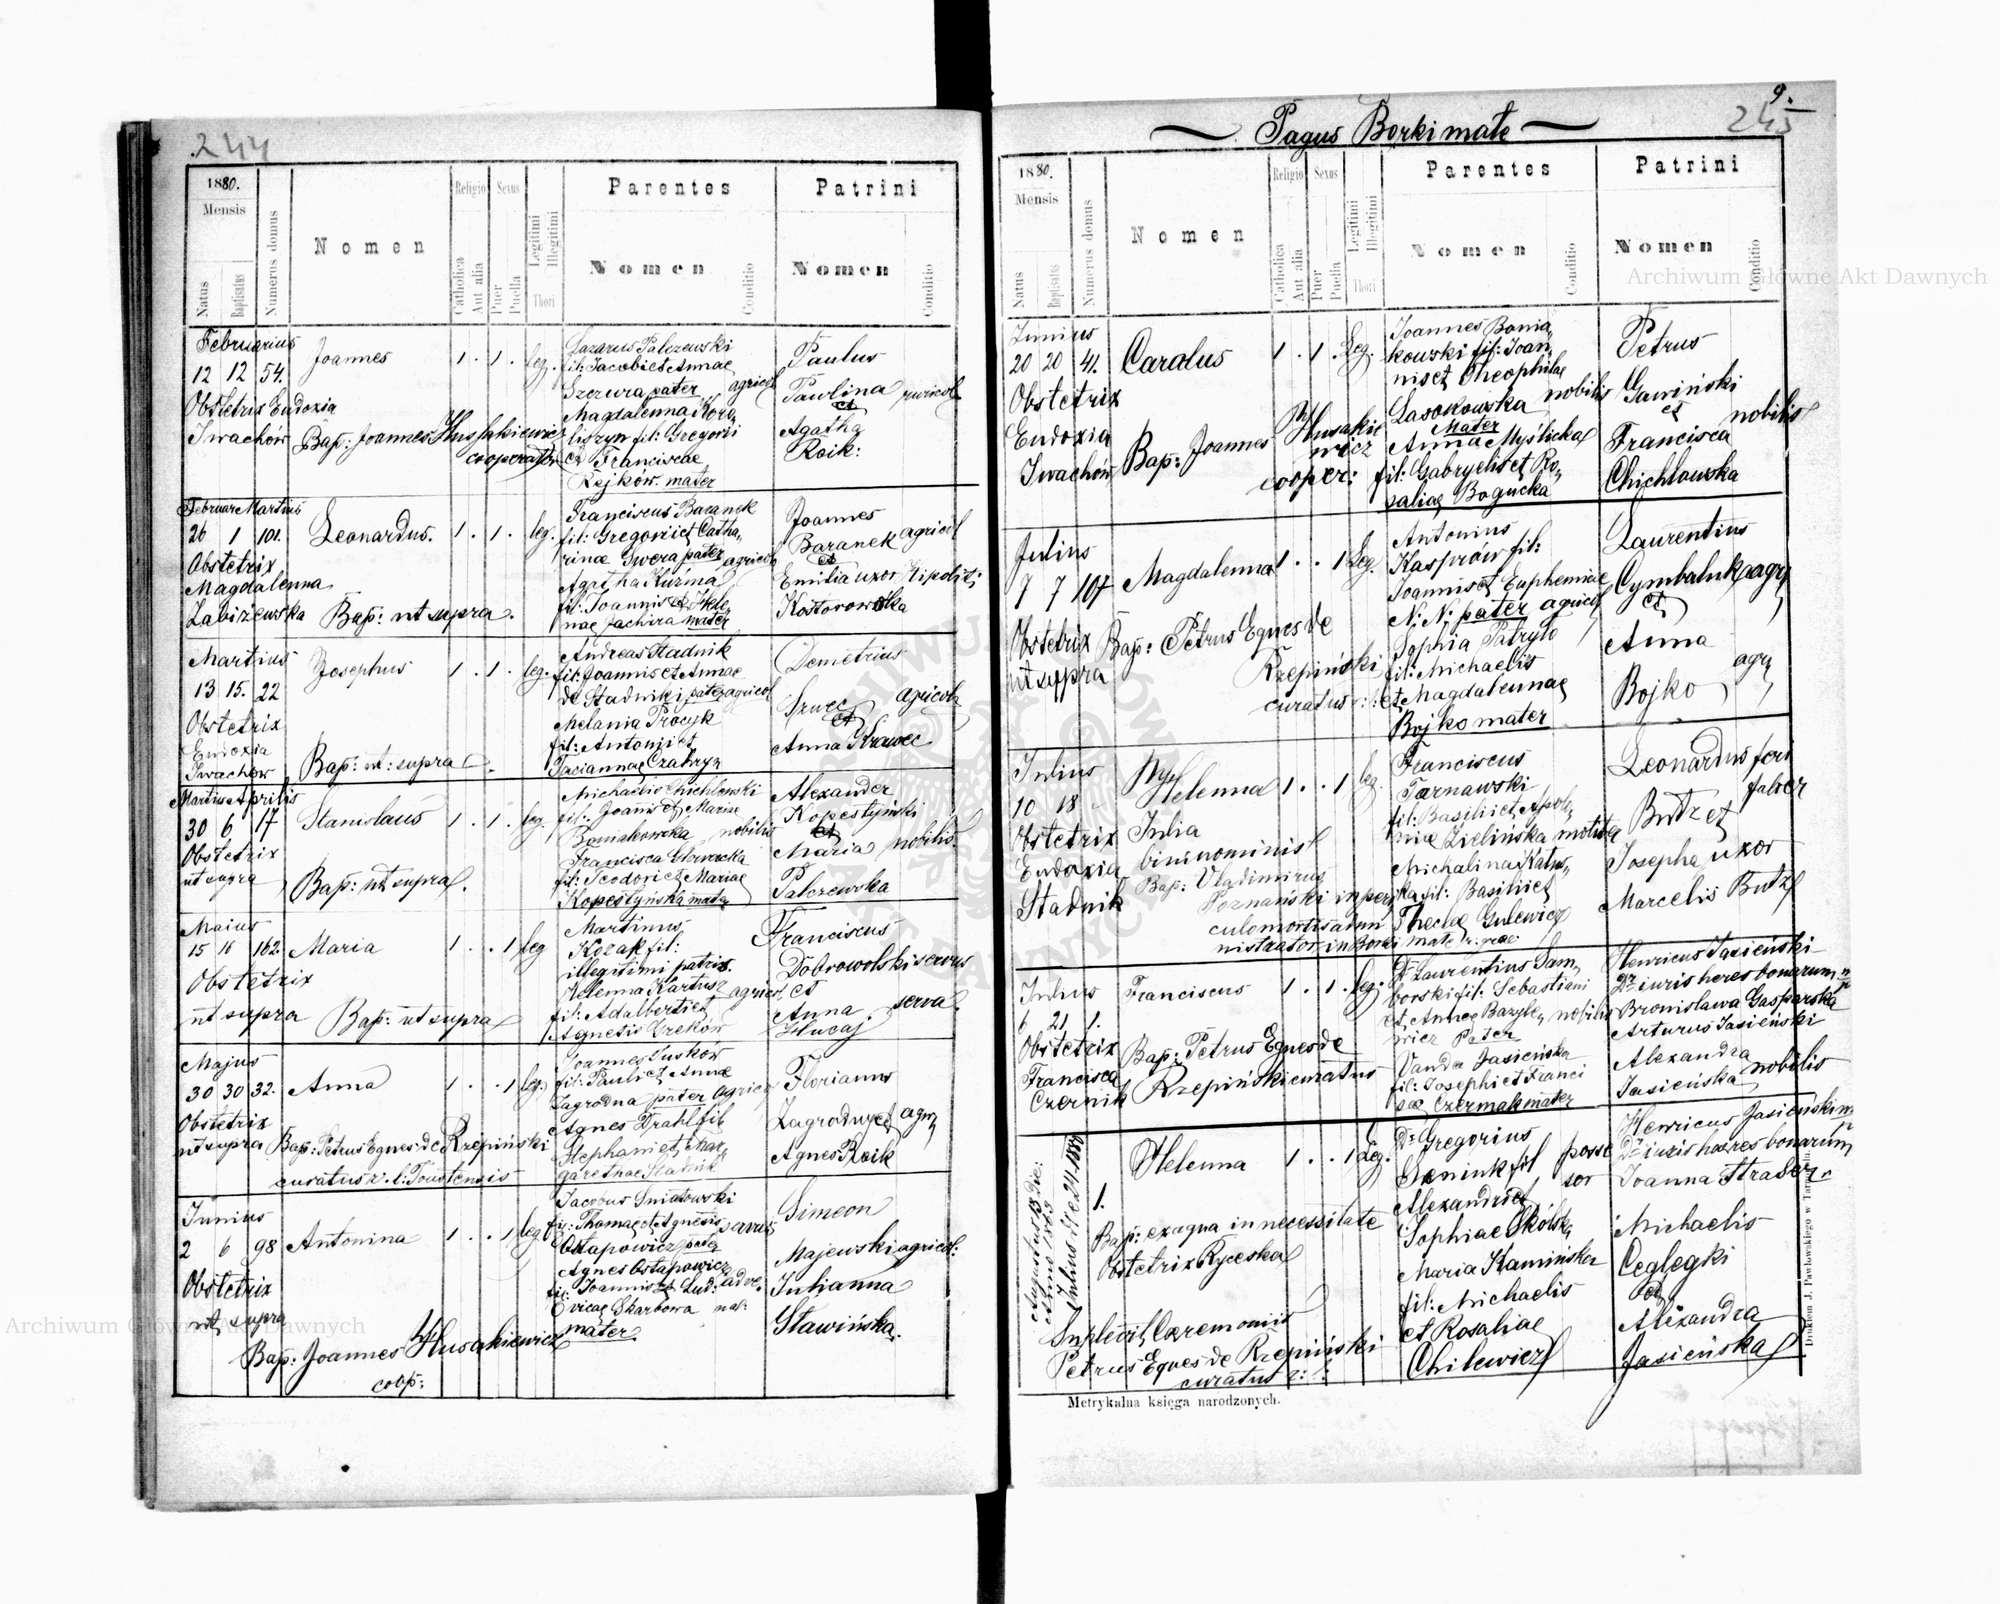 244
1880.
Mensis
Natus
Baptisatus
Numerus domus
Nomen
Religio
Catholica
Aut alia
Sexus
Puer
Puella
Legitimi
Illegitimi
Thori
Parentes
Nomen
Conditio
Patrini
Nomen
Conditio
Februarius
12 12 54.
Obstetrix Eudoxia
Iwachów
Joannes
Bap: Joannes Hussakiewicz
cooperator
1 . 1 . leg.
Lazarus Palczewski
fil: Jacobi et Annae
Szczura pater agricol
Magdalenna Koro,
liszyn fil: Gregorii
et Franciscae
Rejków mater
Paulus
Pawlina ruricol
et
Agatha
Roik:
Februar Martius
26 1 101.
Obstetrix
Magdalenna
Zabizewska
Leonardus.
Bap: ut supra.
1 . 1 . leg.
Franciscus Baranek
fil: Gregorii et Catha,
rinae Gwera pater agricola
Agatha Kuźma
fil: Joannis et Hele
nae Jachira mater
Joannes
Baranek agricol
et
Emilia uxor Hipoliti
Kostorowska
Martius
13 15. 22
Obstetrix
Eudoxia
Iwachow
Josephus
Bap: ut: supra.
1 . 1 . leg.
Andreas Stadnik
fil: Joannis et Annae
de Stadniki pater agricol
Melania Procyk
fil: Antonii et
Taciannae Czabryn
Demetrius
Szwec agricola
et
Anna Krawec
Martius Aprilis
30 6 17
Obstetrix
ut supra
Stanislaus
Bap: ut supra.
1 . 1 . leg.
Michaelis Chichlowski
fil: Joannis et Mariae
Boniakowska nobilis
Francisca Glowacka
fil: Teodori et Mariae
Kopestyńska mater
Alexander
Kopestyński
et
Maria nobilis.
Palczewska
Maius
15 16 162.
Obstetrix
ut supra
Maria
Bap: ut supra
1 . . 1 leg
Martinus
Kozak fil:
illegitimi patris.
Helenna Kartusz agricol.
fil: Adalberti et
Agnetis Greków
Franciscus
Dobrowolski servus
et
Anna serva.
Hucaj
Majus
30 30 32.
Obstetrix
ut supra
Anna
Bap: Petrus Eques de Rzepiński
curatus r. l: Toustensis
1 . . 1 leg.
Joannes Suskow
fil: Pauli et Annae
Zagrodna pater agricol
Agnes Drahl fil
Stephani et Mar,
garethae Stadnik
Florianus
Zagrodny et agr,
Agnes Roik
Junius
2 6 98
Obstetrix
ut supra
Antonina
Bap: Joannes Husakiewicz
coop:
1 . . 1 leg.
Jacobus Sniatowski
fil: Thomae et Agnesis servus
Ostapowicz pater
Agnes Ostapowicz
fil: Joannis et Lud: adve
vicae Skarbowa na:
mater
Simeon
Majewski agricol:
Julianna
Stawińska.
9.
245
Pagus Borki małe
1880.
Mensis
Natus
Baptisatus
Numerus domus
Nomen
Religio
Catholica
Aut alia
Sexus
Puer
Puella
Legitimi
Illegitimi
Thori
Parentes
Nomen
Conditio
Patrini
Nomen
Conditio
Junius
20 20 41.
Obstetrix
Eudoxia
Iwachów
Carolus
Bap: Joannes Husakie
wicz
cooper:
1 . 1 . Leg.
Joannes Bonia,
kowski fil: Joan,
nis et Theophilae
Lasokowska nobilis
Mater
Anna Myślicka
fil: Gabryelis et Ro,
saliae Bogucka
Petrus
Gawiński
et nobilis
Francisca
Chichłowska
Julius
7 7 107
Obstetrix
ut supra
Magdalenna
Bap: Petrus Eques de
Rzepiński
curatus r: l:
1 . . 1 Leg.
Antonius
Kasprów fil:
Joannis et Euphemiae
N: N: pater agricol
Sophia Patryło
fil: Michaelis
et Magdalennae
Bojko mater
Laurentius
Cymbaluk agr,
et
Anna
Bojko agr,
Julius
10 18
Obstetrix
Eudoxia
Stadnik
Helenna
Julia
binominis
Bap: Vladimirus
Poznański in peri
culo mortis admi
nistrator in Borki małe r: grae:
1 . . 1 leg.
Franciscus
Tarnawski
fil: Basilii et Apol,
niae Zielińska molitor
Michalina Katus,
ka fil: Basilii et
Theclae Gulewicz
Leonardus feri
faber
Butz et
Josepha uxor
Marcelis Butz
Julius
6 21 1.
Obstetrix
Francisca
Czernik
Franciscus
Bap: Petrus Eques de
Rzepiński curatus
1 . 1 . leg.
Dr Laurentius Sam,
borski fil: Sebastiani
et Annae Bazyle, nobilis
wicz Pater
Vanda Jasieńska
fil: Josephi et Franci
scae Czermak mater
Henricus Jasieński
Dr iuris heres bonarum
Bronisława Gasparska
Arturus Jasieński
Alexandra
Jasieńska nobilis
Augustus 18 die:
Anno 1883
Julius die 24. 1880
1.
Helenna
Bap: ex aqua in necessitate
Obstetrix Ryceska
Suplevit Ceremonias
Petrus Eques de Rzepiński
curatus r: l:
1 . . 1 Leg.
Dr Gregorius
Ocniuk fil posse
sor
Alexandri et
Sophiae Skólska,
Maria Kamińska
fil: Michaelis
et Rosaliae
Chilewicz
Henricus Jasieński
Dr iuris haeres bonarum
Joanna Strader
Michaelis
Ceglegki
et
Alexandra
Jasieńska
Metrykalna księga narodzonych.
Drukiem J. Pawłowskiego w Tarnopolu
Archiwum Główne Akt Dawnych
Archiwum Główne Akt Dawnych